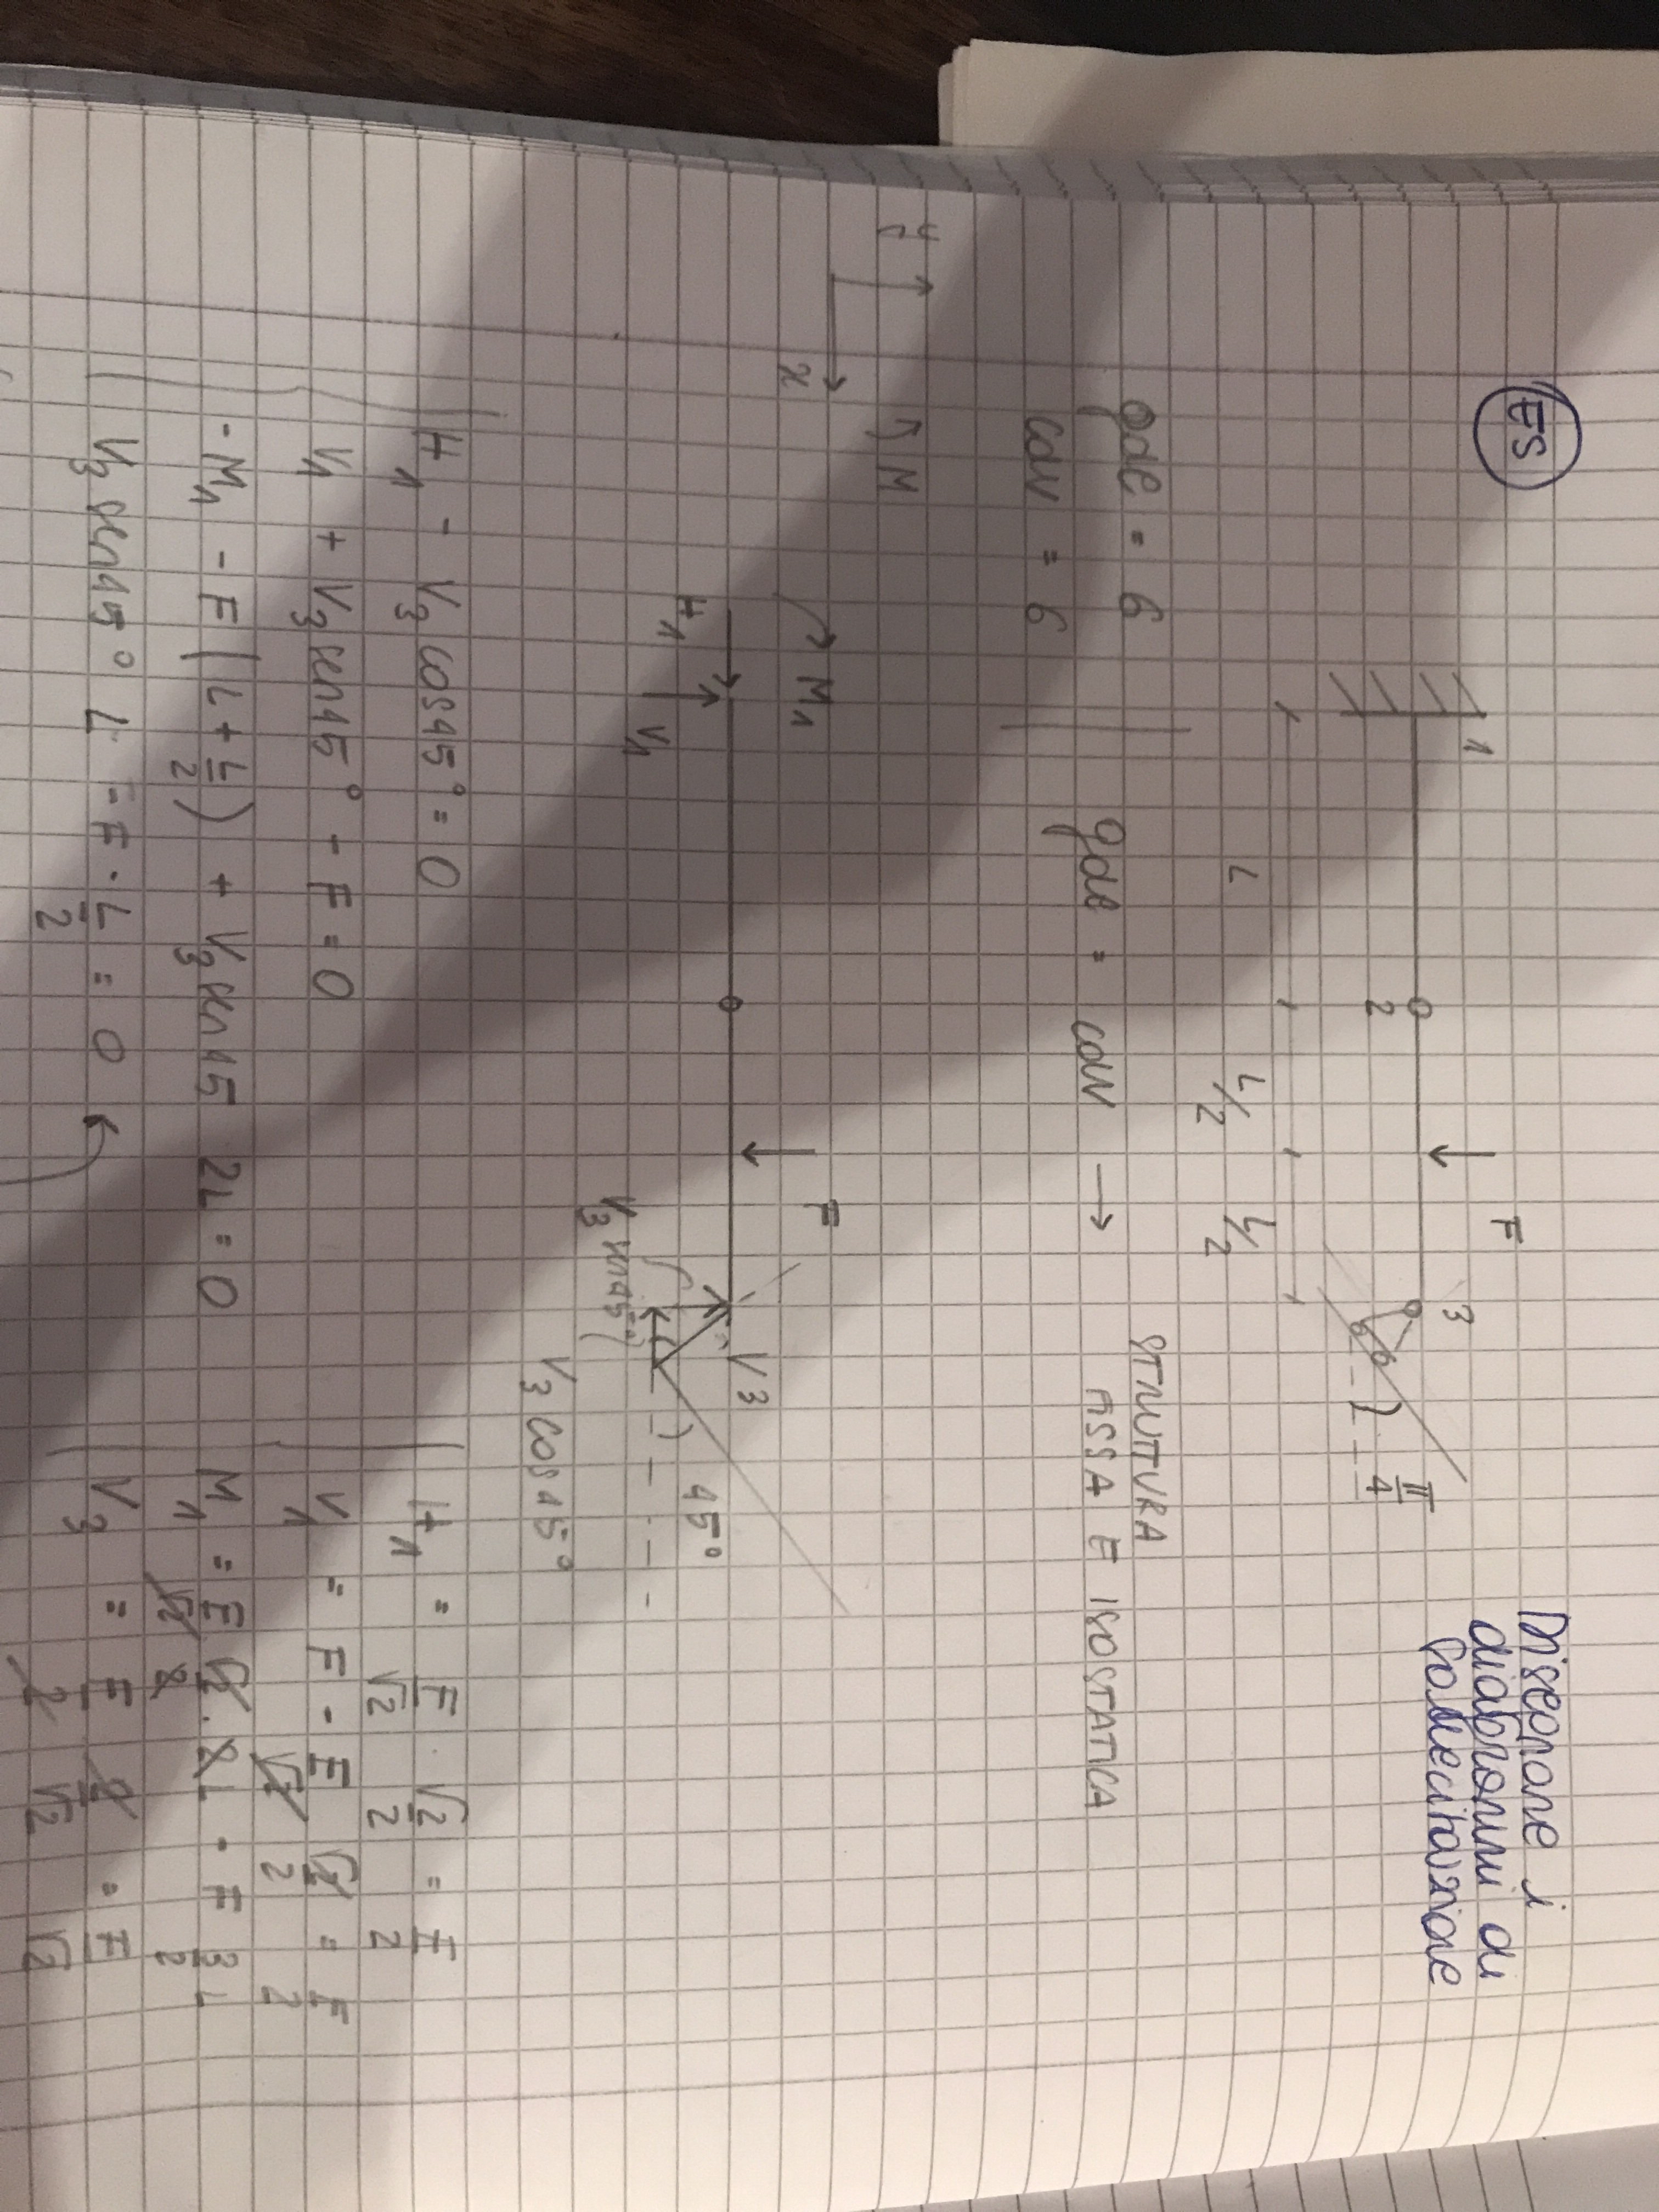 ES
Disegnare i
diagrammi di
sollecitazione
1
F
3
2
π/4
L
L/2
L/2
gdl = 6
cdv = 6
gdl = cdv →
STRUTTURA
ASSA E ISOSTATICA
y
x
M
M1
F
H1
V1
V3
45°
V3 sen45°
V3 cos45°
H1 - V3 cos45° = 0
V1 + V3 sen45° - F = 0
-M1 - F (L + L/2) + V3 sen45 2L = 0
V3 sen45° L - F · L/2 = 0
H1 = F/√2 · √2/2 = F/2
V1 = F - F/√2 √2/2 = F/2
M1 = F/√2 √2/2 · 2L - F 3/2 L
V3 = F/2 2/√2 = F/√2